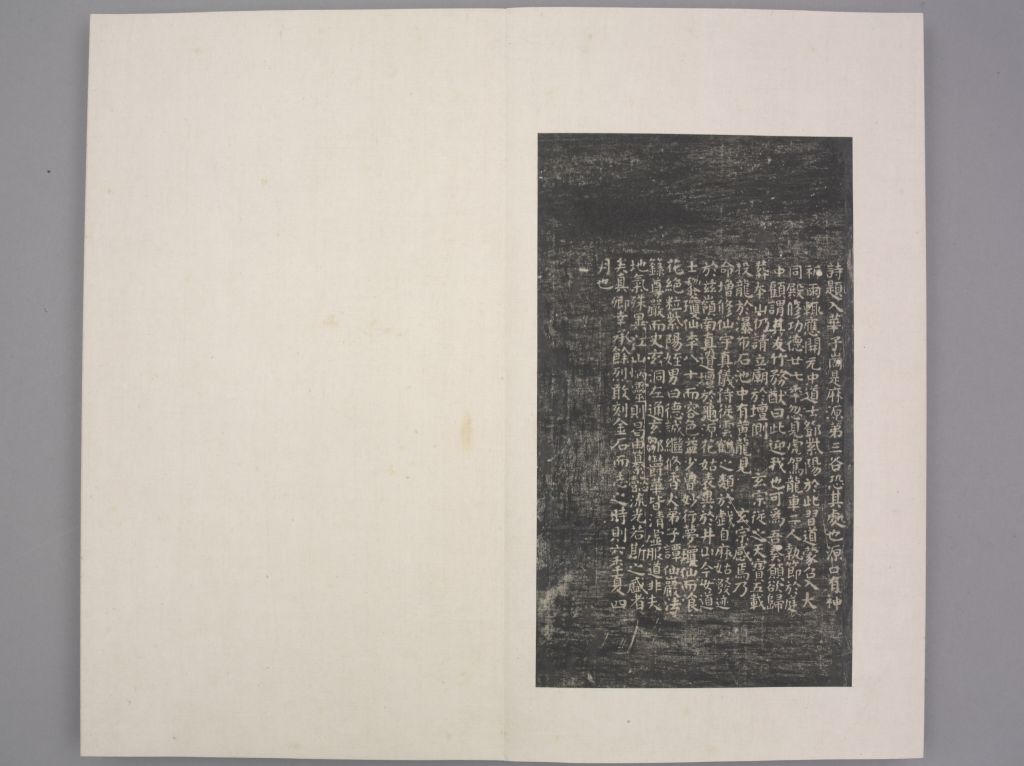 詩題入華子崗是麻源第三谷恐其處也源口有神
祈雨輒應開元中道士鄧紫陽於此習道蒙召入大
同殿修功德廿七年忽見虎駕龍車二人執節於庭
中顧謂其友竹務猷曰此迎我也可為吾奏願欲歸
葬本山仍請立廟於壇側 玄宗從之天寶五載
投龍於瀑布石池中有黃龍見 玄宗感焉乃
命增修仙宇真儀侍從雲鶴之類於戲自麻姑發迹
於茲嶺南真遺壇於龜源花姑表異於井山今女道
士黎瓊仙年八十而容色益少曾妙行夢瓊仙而飡
花絕粒紫陽姪男曰德誠繼修香火弟子譚仙巖法
籙尊嚴而史玄洞左通玄鄒鬱華皆清虛服道非夫
地氣殊異江山炳靈則曷由纂懿流光若斯之盛者
矣真卿幸承餘列敢刻金石而志之時則六年夏四
月也